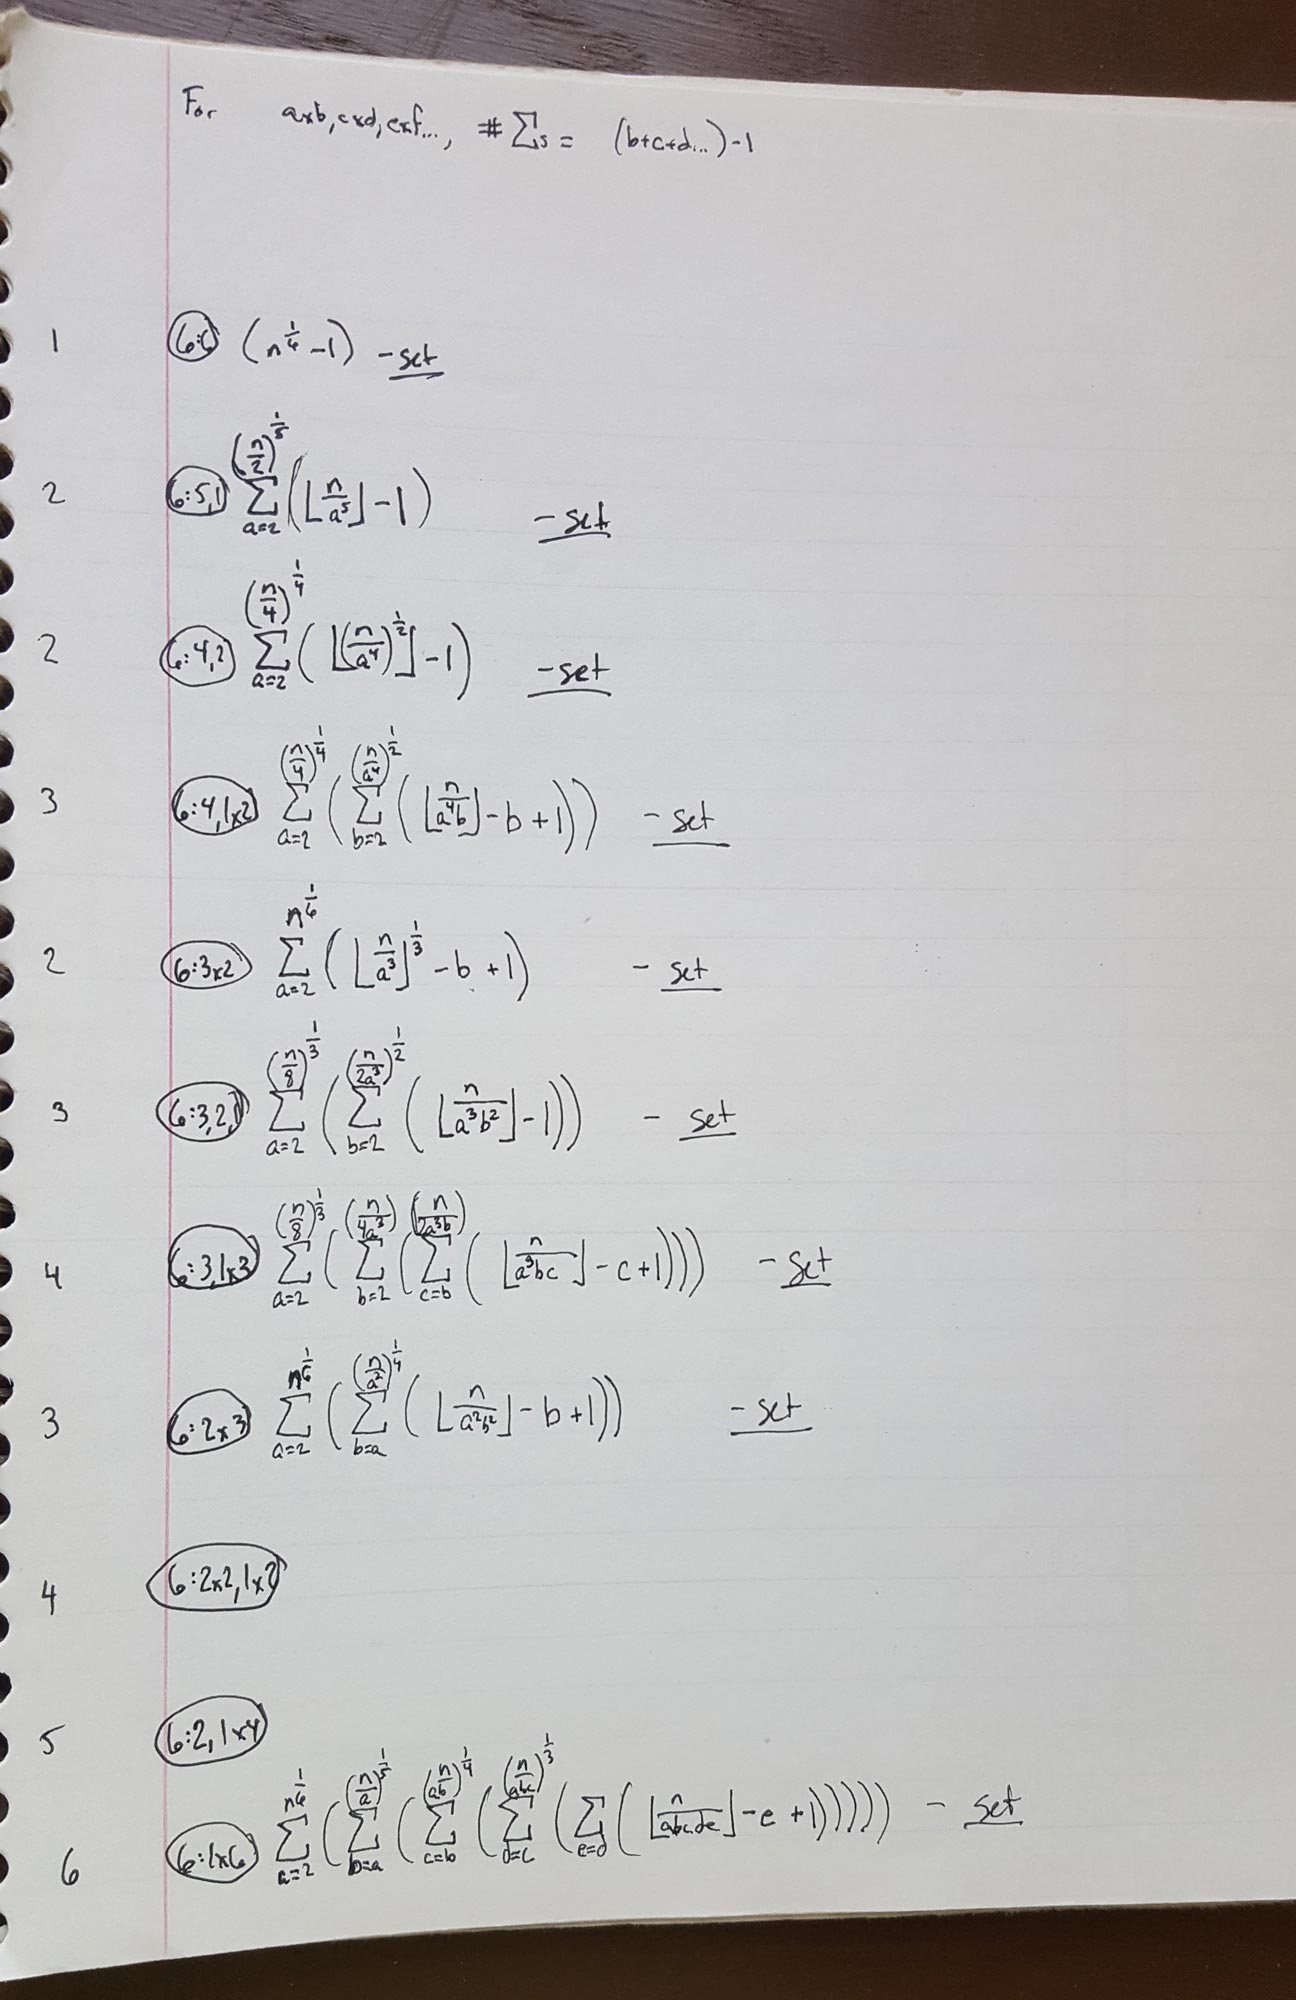 For a×b, c×d, e×f..., # Σs = (b+c+d...)-1
1 6:6 (n^(1/6) - 1) - set
2 6:5,1 Σ_{a=2}^{(n/2)^(1/5)} (⌊n/a^5⌋ - 1) - set
2 6:4,2 Σ_{a=2}^{(n/4)^(1/4)} (⌊(n/a^4)^(1/2)⌋ - 1) - set
3 6:4,1×2 Σ_{a=2}^{(n/4)^(1/4)} (Σ_{b=2}^{(n/a^4)^(1/2)} (⌊n/a^4b⌋ - b + 1)) - set
2 6:3×2 Σ_{a=2}^{n^(1/6)} (⌊n/a^3⌋^(1/3) - b + 1) - set
3 6:3,2,1 Σ_{a=2}^{(n/8)^(1/3)} (Σ_{b=2}^{(n/2a^3)^(1/2)} (⌊n/a^3b^2⌋ - 1)) - set
4 6:3,1×3 Σ_{a=2}^{(n/8)^(1/3)} (Σ_{b=2}^{(n/4a^3)} (Σ_{c=b}^{(n/2a^3b)} (⌊n/a^3bc⌋ - c + 1))) - set
3 6:2×3 Σ_{a=2}^{n^(1/6)} (Σ_{b=a}^{(n/a^2)^(1/4)} (⌊n/a^2b^2⌋ - b + 1)) - set
4 6:2×2,1×2
5 6:2,1×4
6 6:1×6 Σ_{a=2}^{n^(1/6)} (Σ_{b=a}^{(n/a)^(1/5)} (Σ_{c=b}^{(n/ab)^(1/4)} (Σ_{d=c}^{(n/abc)^(1/3)} (Σ_{e=d} (⌊n/abcde⌋ - e + 1))))) - set